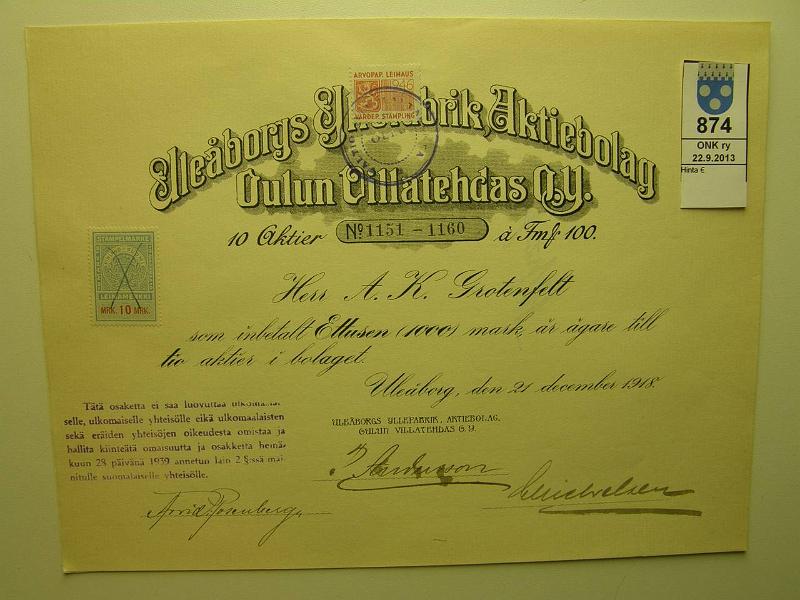 ARVOPAP. LEIMAUS
1946
VÄRDEP. STÄMPLING
Uleåborgs Yllefabrik, Aktiebolag
Oulun Villatehdas O.Y.
874
ONK ry
22.9.2013
Hinta €
10 Aktier No 1151 - 1160 à Fmk 100.
STÄMPELMARKE
LEIMAMERKKI
MRK. 10 MRK.
Herr A. K. Grotenfelt
som inbetalt Ettusen (1000) mark, är ägare till
tio aktier i bolaget.
Uleåborg, den 21 december 1918.
ULEÅBORGS YLLEFABRIK, AKTIEBOLAG.
OULUN VILLATEHDAS O.Y.
Tätä osaketta ei saa luovuttaa ulkomaalai-
selle, ulkomaiselle yhteisölle eikä ulkomaalaisten
sekä eräiden yhteisöjen oikeudesta omistaa ja
hallita kiinteätä omaisuutta ja osakkeita heinä-
kuun 28 päivänä 1939 annetun lain 2 §:ssä mai-
nitulle suomalaiselle yhteisölle.
Arvid Rosenberg